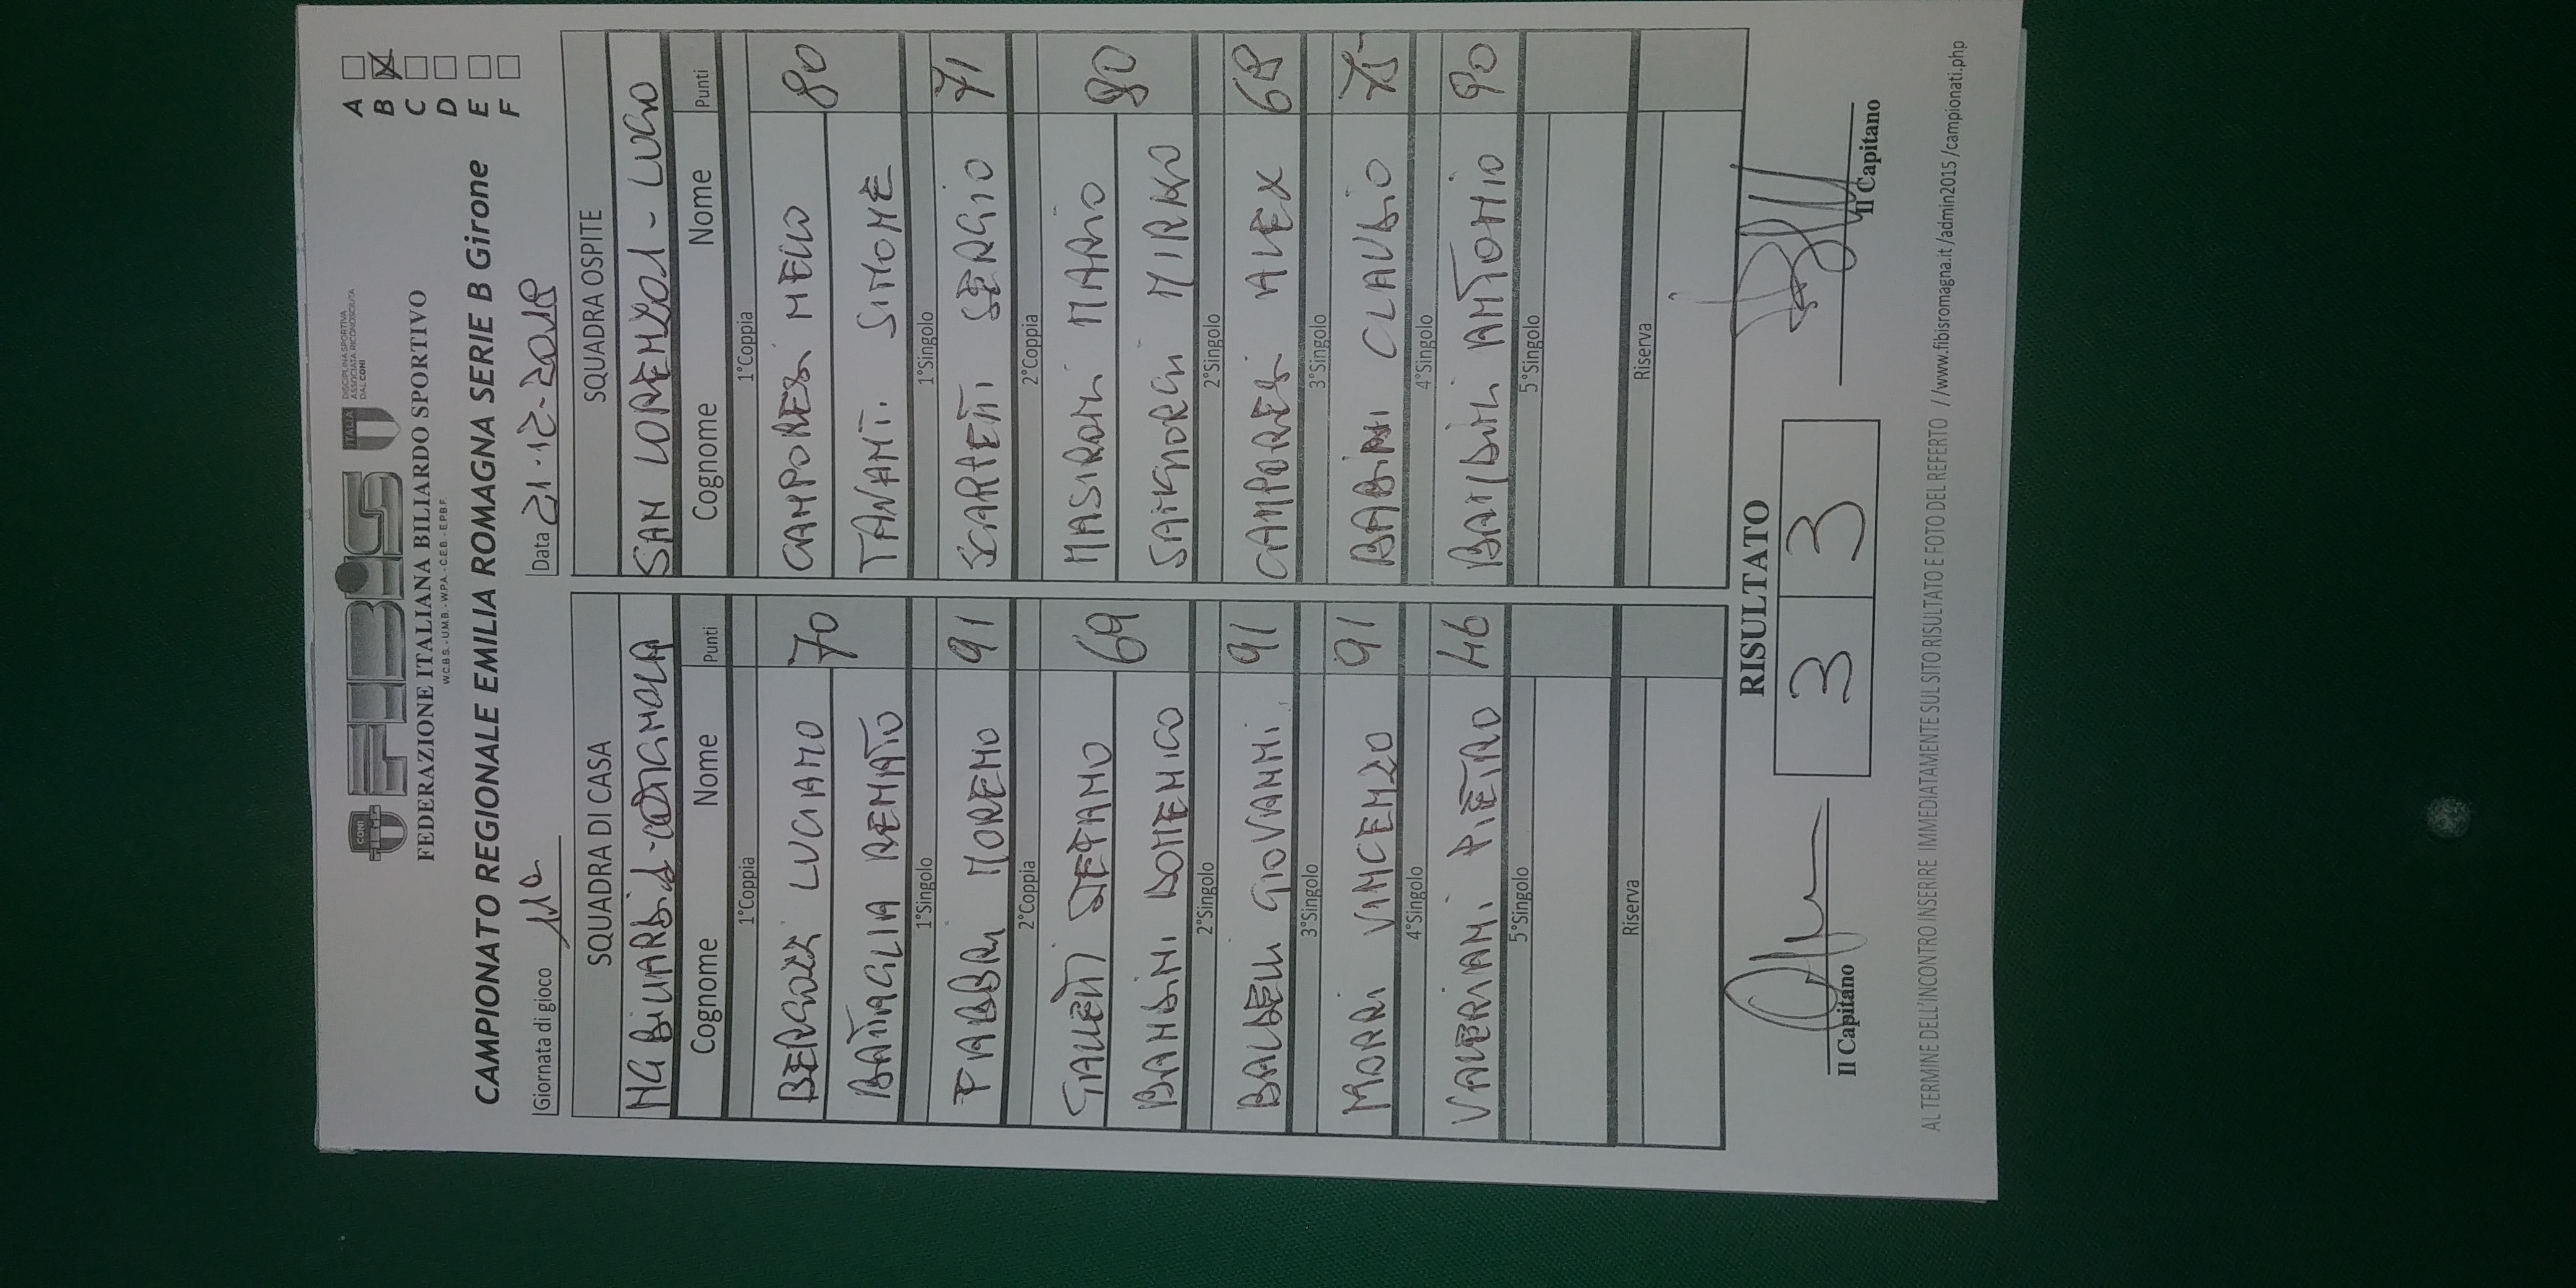 CONI
FIBiS
ITALIA
DISCIPLINA SPORTIVA
ASSOCIATA RICONOSCIUTA
DAL CONI
FEDERAZIONE ITALIANA BILIARDO SPORTIVO
W.C.B.S. - U.M.B. - W.P.A. - C.E.B. - E.P.B.F.
CAMPIONATO REGIONALE EMILIA ROMAGNA SERIE B Girone
A
B X
C
D
E
F
Giornata di gioco 11a
Data 21-12-2018
SQUADRA DI CASA
SQUADRA OSPITE
SAN LORENZO1 - LUGO
Cognome Nome Punti
Cognome Nome Punti
1°Coppia
1°Coppia
BERGOZZi LUCIANO 70
CAMPORESi MELLO 80
BATTAGLIA RENATO
TANANTi SIMONE
1°Singolo
1°Singolo
FABBRi MORENO 91
SCARPETTi SERGIO 71
2°Coppia
2°Coppia
GALLETTi STEFANO 69
MASIRONi MARiO 80
BANDiNi DOMENICO
SANGIORGi MIRKO
2°Singolo
2°Singolo
BALDELLi GIOVANNi 91
CAMPORESi ALEX 68
3°Singolo
3°Singolo
MORRi VINCENZO 91
BABiNi CLAUDiO 75
4°Singolo
4°Singolo
VALERIANi PIETRO 46
BANDiNi ANTONIO 90
5°Singolo
5°Singolo
Riserva
Riserva
RISULTATO
3 3
Il Capitano
Il Capitano
AL TERMINE DELL'INCONTRO INSERIRE IMMEDIATAMENTE SUL SITO RISULTATO E FOTO DEL REFERTO //www.fibisromagna.it/admin2015/campionati.php